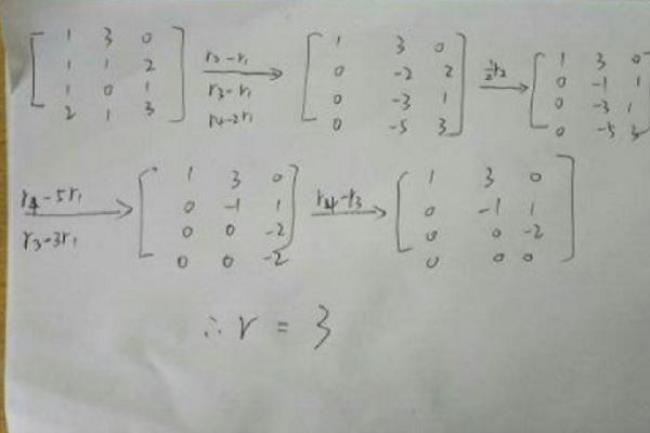 [1 3 0; 1 1 2; 1 0 1; 2 1 3] r2-r1, r3-r1, r4-2r1 → [1 3 0; 0 -2 2; 0 -3 1; 0 -5 3] 1/2 r2 → [1 3 0; 0 -1 1; 0 -3 1; 0 -5 3]
r4-5r1, r3-3r1 → [1 3 0; 0 -1 1; 0 0 -2; 0 0 -2] r4-r3 → [1 3 0; 0 -1 1; 0 0 -2; 0 0 0]
∴ r = 3